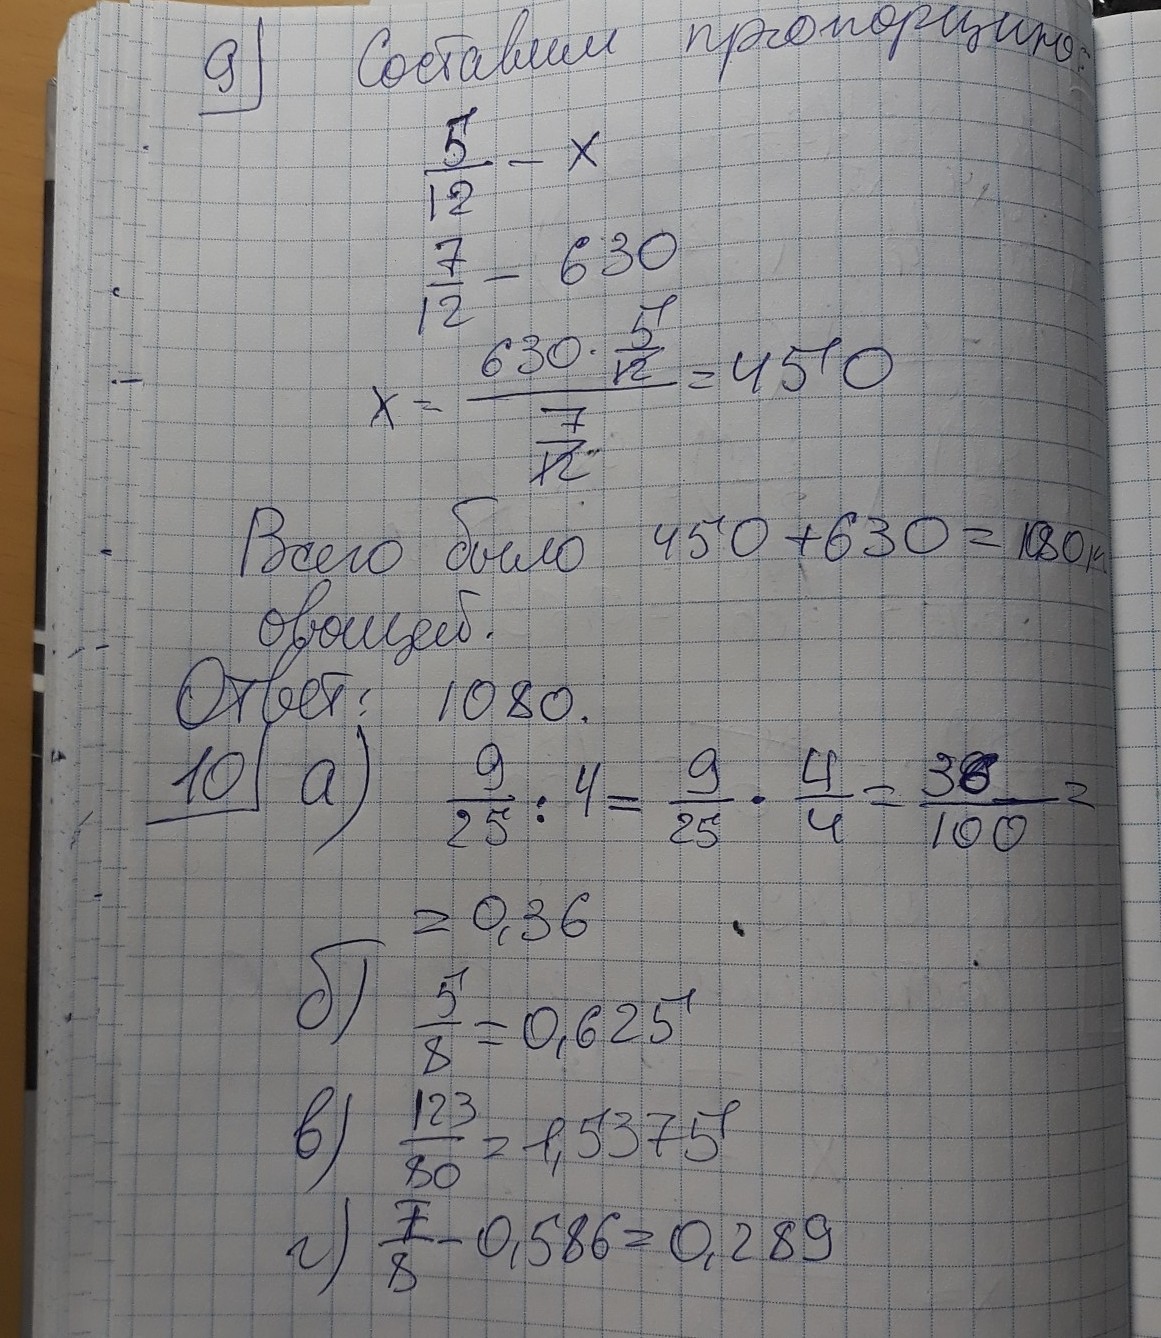 9) Составим пропорцию:
5/12 – x
7/12 – 630
x = (630 · 5/12) / (7/12) = 450
Всего было 450 + 630 = 1080 кг
овощей.
Ответ: 1080.
10) а) 9/25 : 4 = 9/25 · 4/4 = 36/100 =
= 0,36
б) 5/8 = 0,625
в) 123/80 = 1,5375
г) 7/8 - 0,586 = 0,289